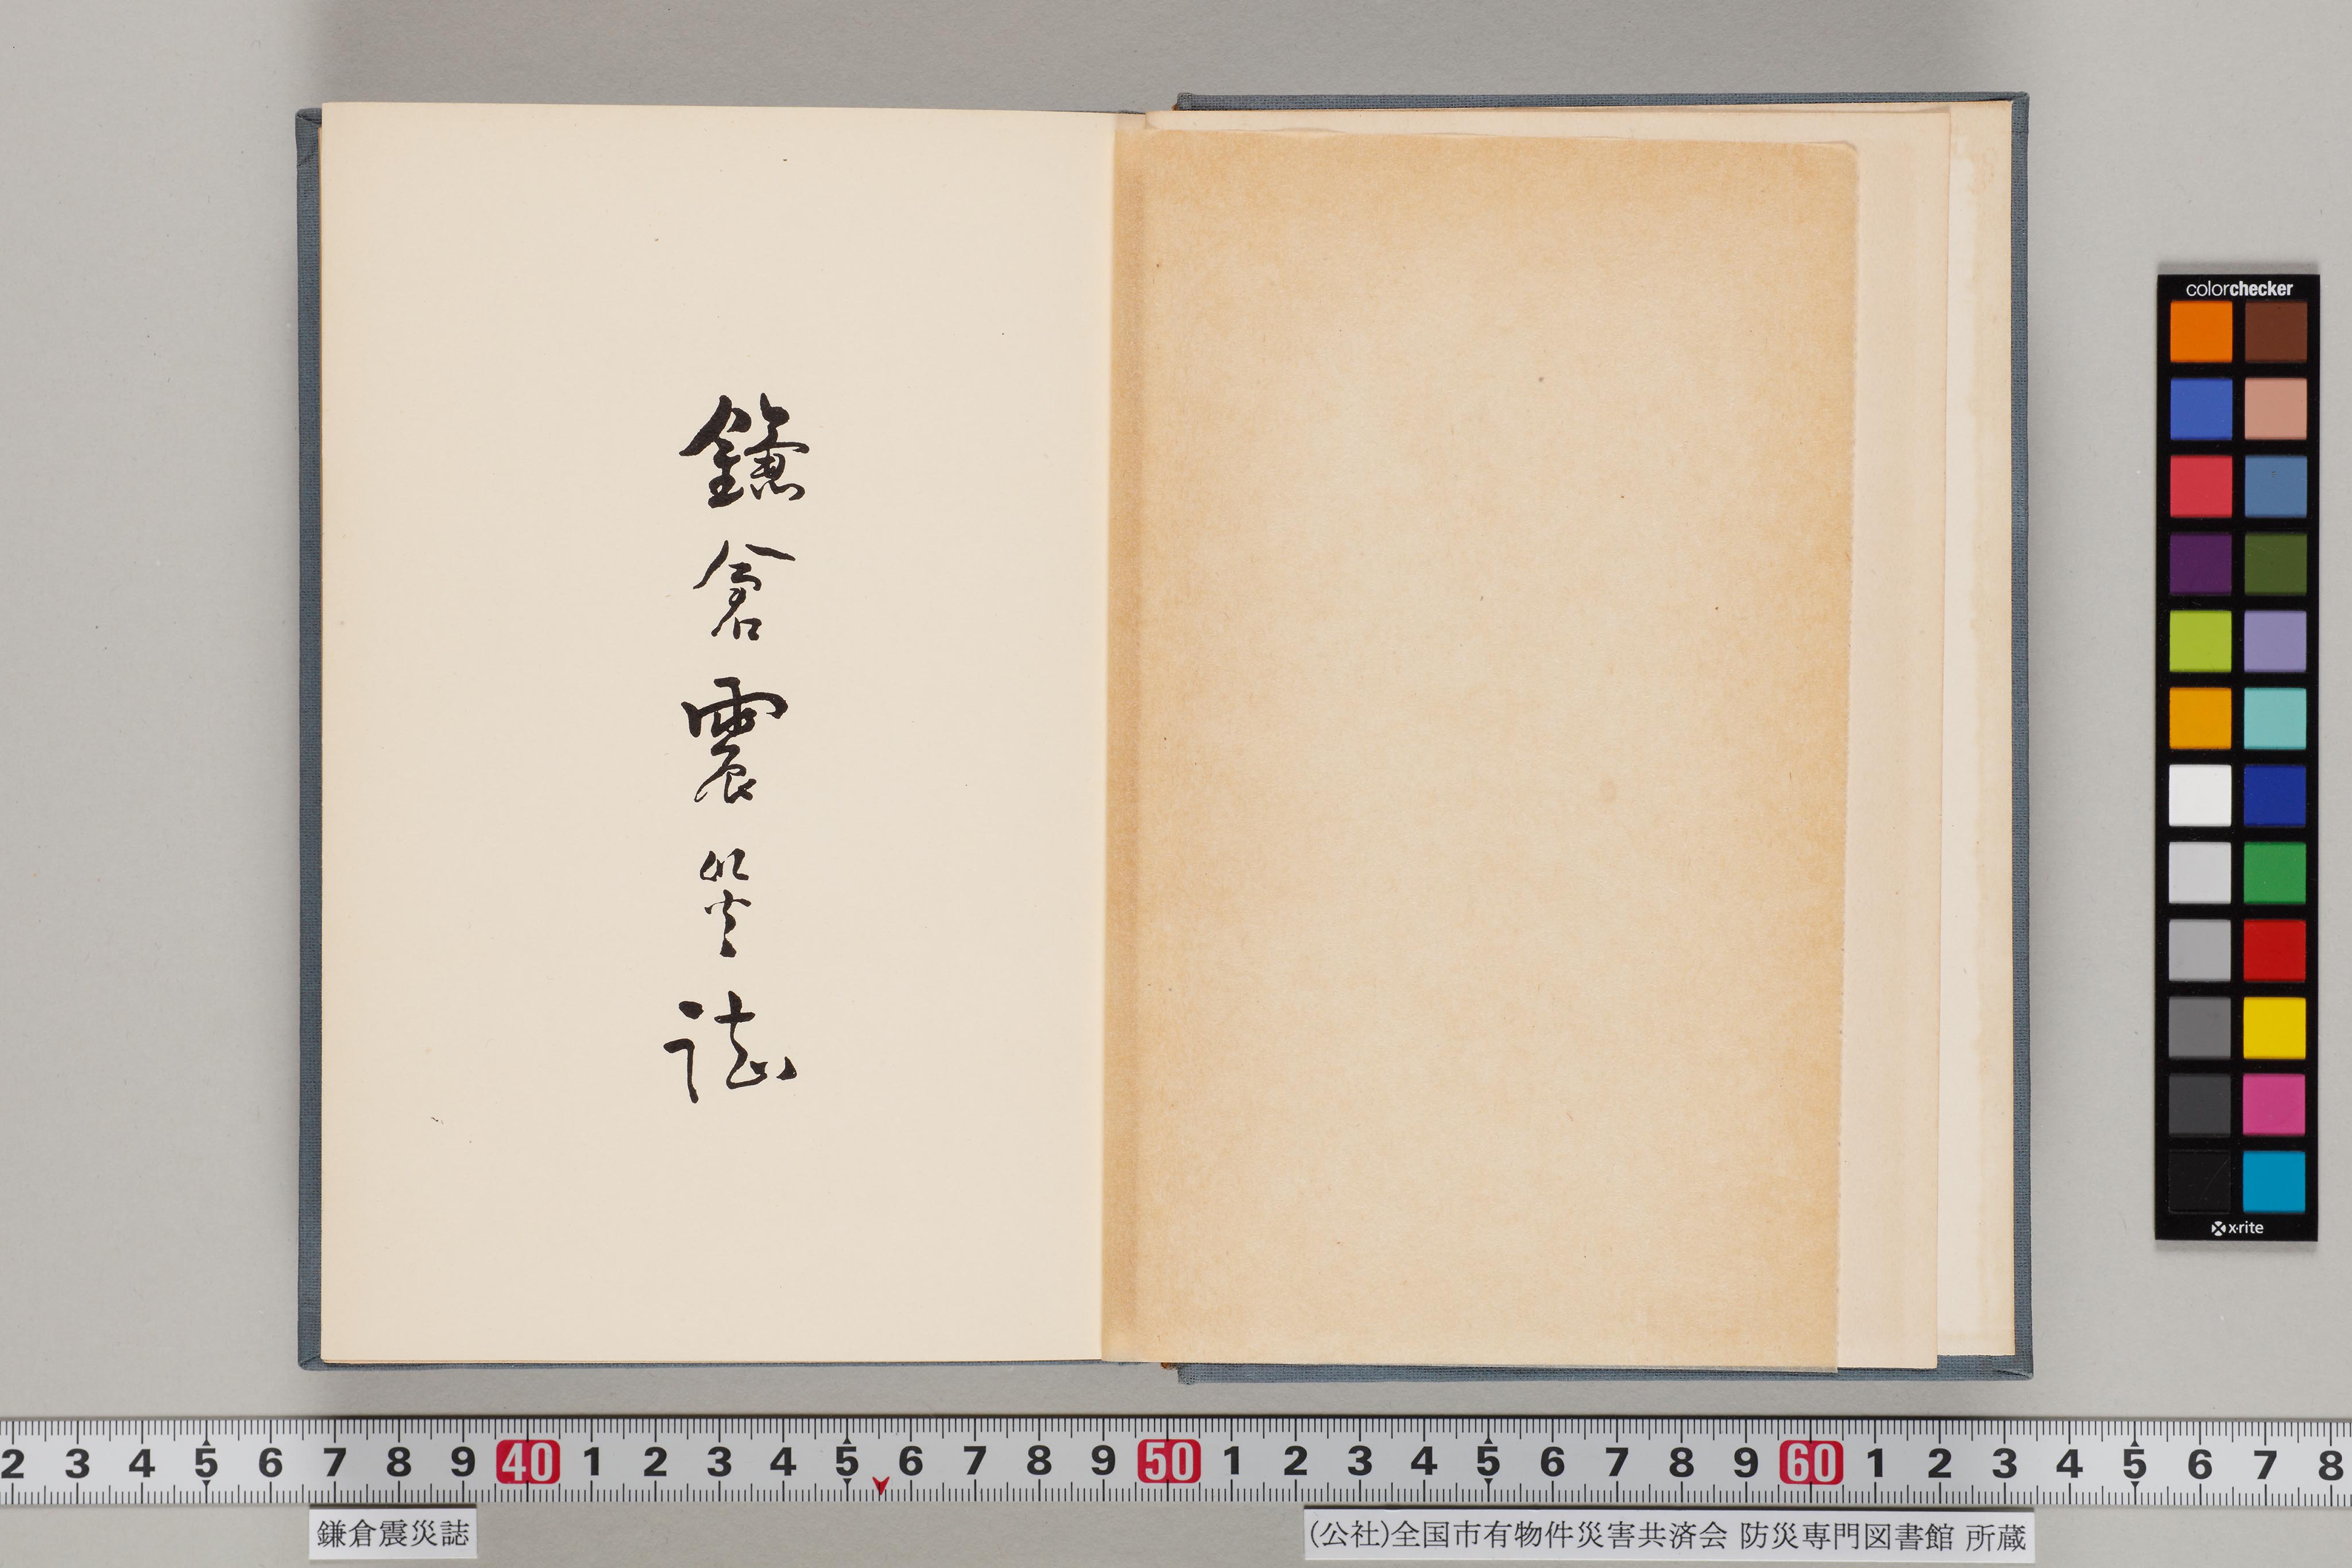 鎌倉震災誌
colorchecker
x·rite
2 3 4 5 6 7 8 9 40 1 2 3 4 5 6 7 8 9 50 1 2 3 4 5 6 7 8 9 60 1 2 3 4 5 6 7 8
鎌倉震災誌
(公社)全国市有物件災害共済会 防災専門図書館 所蔵